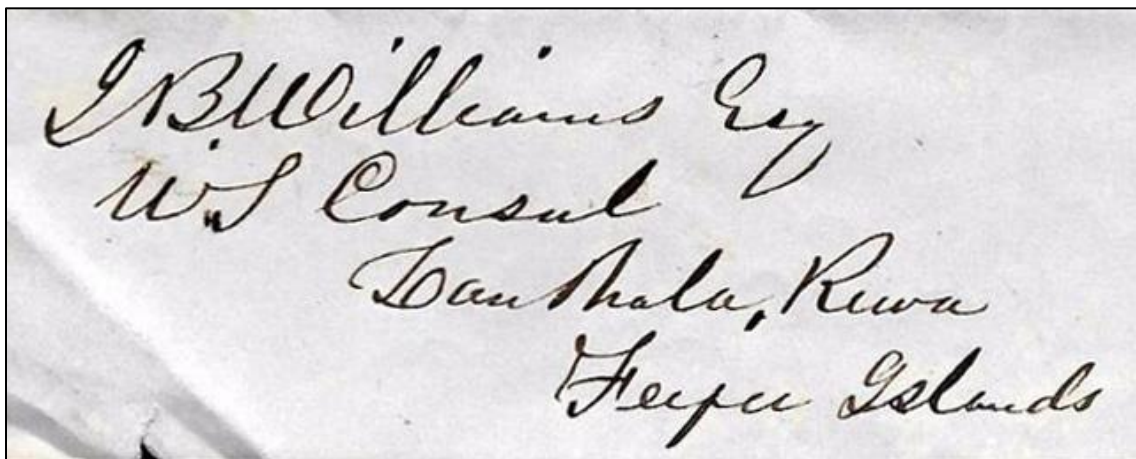 J B. Williams Esq
U.S Consul
Lauthala, Rewa
Feejee Islands